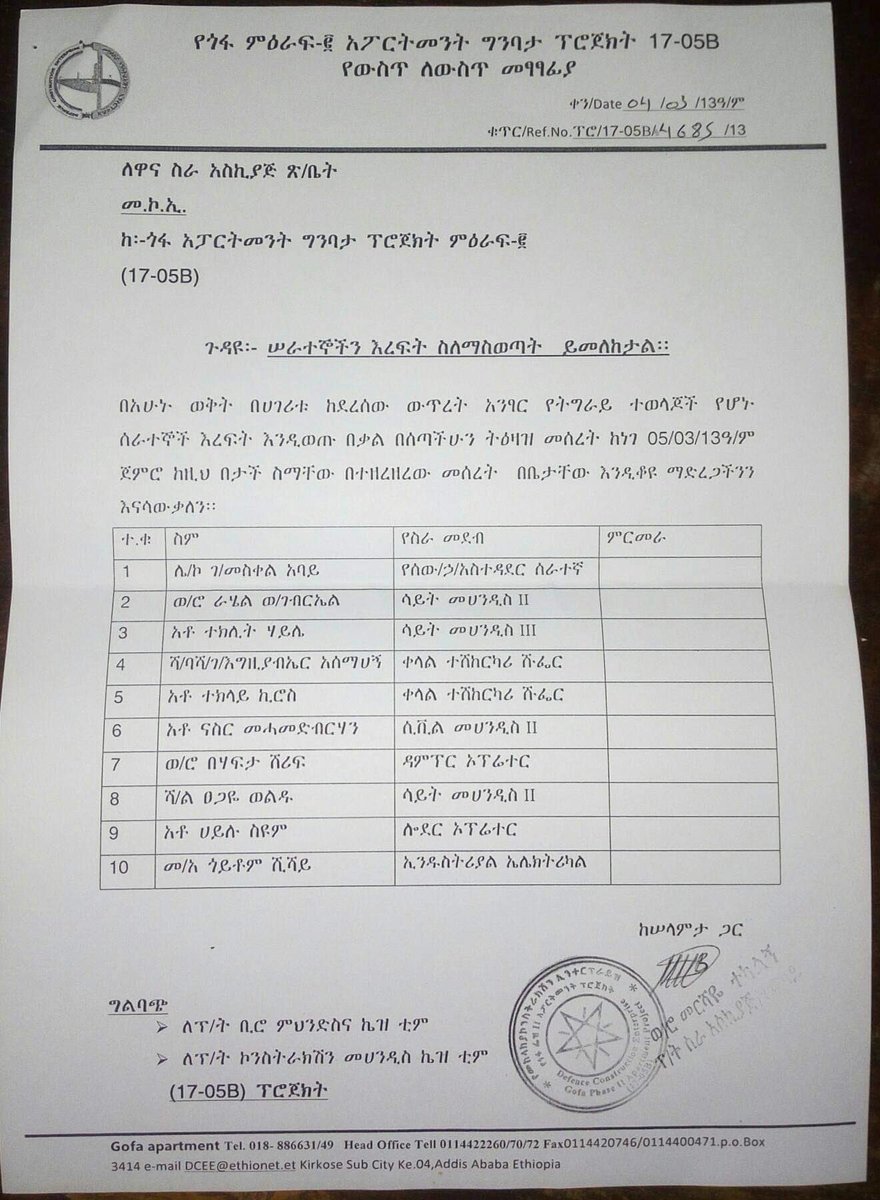 የጎፋ ምዕራፍ-፪ አፖርትመንት ግንባታ ፕሮጀክት 17-05B
የውስጥ ለውስጥ መፃፃፊያ
ቀን/Date 04 /03 /13ዓ/ም
ቁጥር/Ref.No.ፕሮ/17-05B/4685 /13
ለዋና ስራ አስኪያጅ ጽ/ቤት
መ.ኮ.ኢ.
ከ፡-ጎፋ አፓርትመንት ግንባታ ፕሮጀክት ምዕራፍ-፪
(17-05B)
ጉዳዩ፡- ሠራተኞችን እረፍት ስለማስወጣት ይመለከታል፡፡
በአሁኑ ወቅት በሀገሪቱ ከደረሰው ውጥረት አንፃር የትግራይ ተወላጆች የሆኑ
ሰራተኞች እረፍት እንዲወጡ በቃል በሰጣችሁን ትዕዛዝ መሰረት ከነገ 05/03/13ዓ/ም
ጀምሮ ከዚህ በታች ስማቸው በተዘረዘረው መሰረት በቤታቸው እንዲቆዩ ማድረጋችንን
እናሳውቃለን፡፡
ተ.ቁ ስም የስራ መደብ ምርመራ
1 ሌ/ኮ ገ/መስቀል አባይ የሰው/ኃ/አስተዳደር ሰራተኛ
2 ወ/ሮ ራሄል ወ/ገብርኤል ሳይት መሀንዲስ II
3 አቶ ተክሊት ሃይሌ ሳይት መሀንዲስ III
4 ሻ/ባሻ/ገ/እግዚያብኤር አሰማህኝ ቀላል ተሽከርካሪ ሹፌር
5 አቶ ተክላይ ኪሮስ ቀላል ተሽከርካሪ ሹፌር
6 አቶ ናስር መሓመድብርሃን ሲቪል መሀንዲስ II
7 ወ/ሮ በሃፍታ ሽሪፍ ዳምፕር ኦፕሬተር
8 ሻ/ል ፀጋዬ ወልዱ ሳይት መሀንዲስ II
9 አቶ ሀይሉ ስዩም ሎደር ኦፕሬተር
10 መ/አ ጎይቶም ሺሻይ ኢንዱስትሪያል ኤሌክትሪካል
ከሠላምታ ጋር
Defence Construction Enterprise
Gofa Phase II Apartment Project
ግልባጭ
➢ ለፕ/ት ቢሮ ምህንድስና ኬዝ ቲም
➢ ለፕ/ት ኮንስትራክሽን መሀንዲስ ኬዝ ቲም
(17-05B) ፕሮጀክት
Gofa apartment Tel. 018- 886631/49 Head Office Tell 0114422260/70/72 Fax0114420746/0114400471.p.o.Box
3414 e-mail DCEE@ethionet.et Kirkose Sub City Ke.04,Addis Ababa Ethiopia